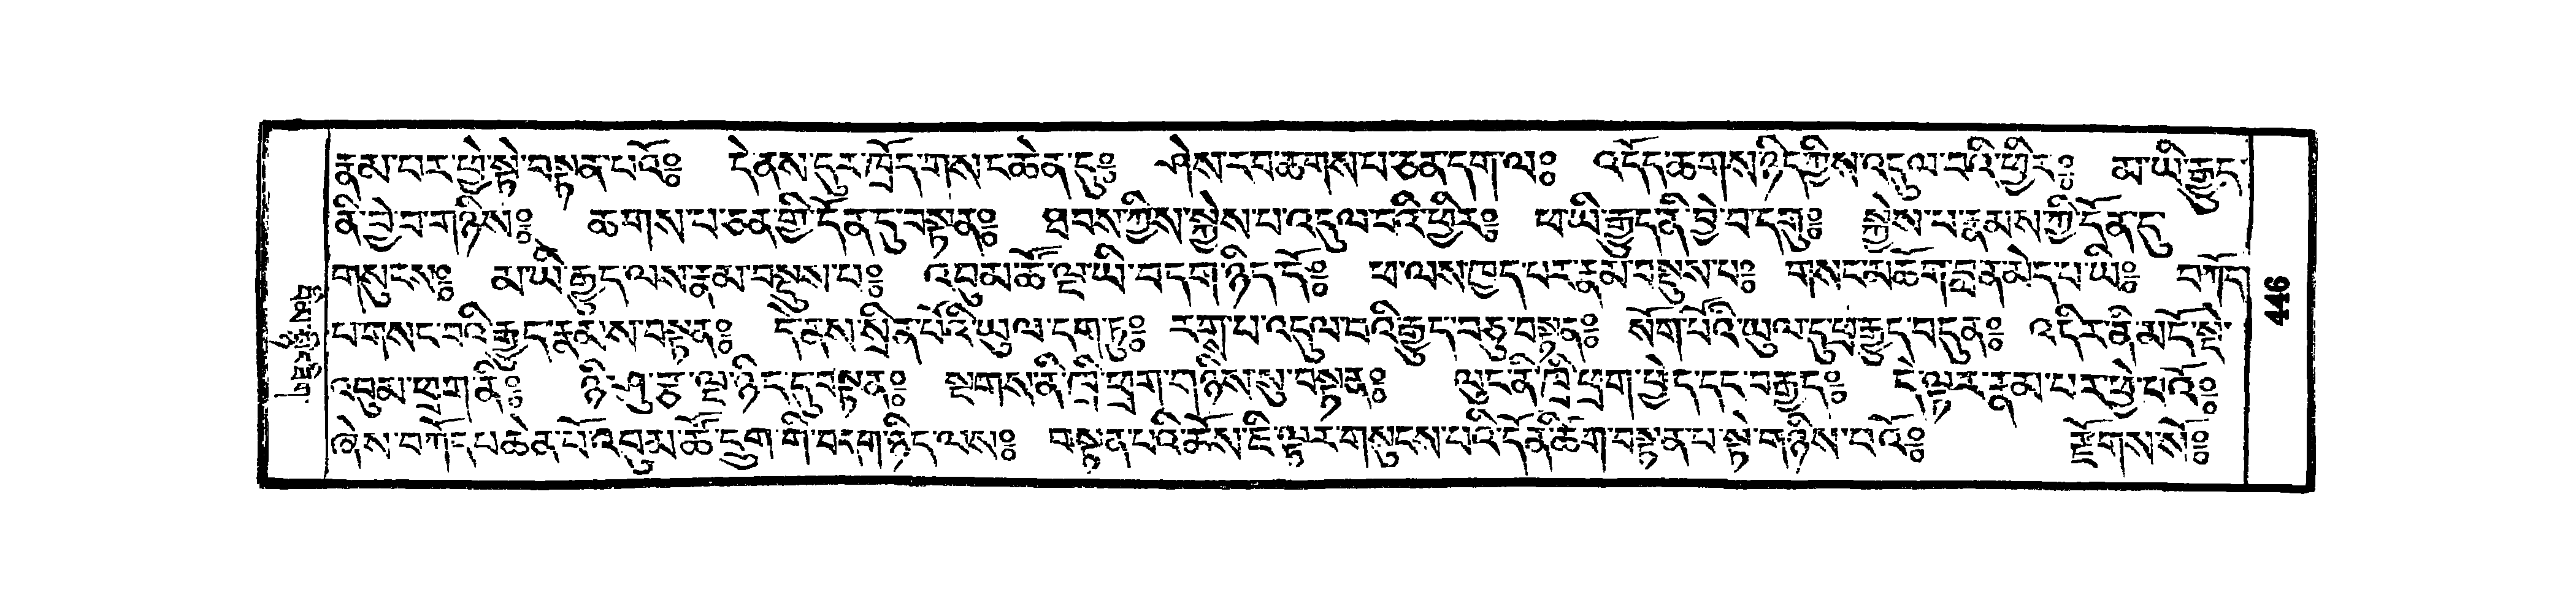 རྣམ་པར་ཕྱེ་སྟེ་བསྟན་པའོ༔ དེ་ནས་དུར་ཁྲོད་གས་ང་ཆེན་དུ༔ ཤེས་རབ་ཆགས་པ་ཅན་དག་ལ༔ འདོད་ཆགས་ཉིད་ཀྱིས་འདུལ་བའི་ཕྱིར༔ མ་ཡི་རྒྱུད་
ནི་བྱེ་བ་གཉིས༔ ཆགས་པ་ཅན་གྱི་དོན་དུ་བསྟན༔ ཐབས་ཀྱིས་སྐྱེས་པ་འདུལ་བའི་ཕྱིར༔ ཕ་ཡི་རྒྱུད་ནི་བྱེ་བ་དགུ༔ སྐྱེས་པ་རྣམས་ཀྱི་དོན་དུ
གསུངས༔ མ་ཡི་རྒྱུད་ལས་རྣམ་བསྡུས་པ༔ འབུམ་ཚོ་ལྔ་ཡི་བདག་ཉིད་དོ༔ ཕ་ལས་ཁྱད་པར་རྣམ་བསྡུས་པ༔ གསང་མཆོག་བླ་ན་མེད་པ་ཡི༔ བཀོད
པ་གསང་བའི་རྒྱུད་རྣམས་བསྟན༔ དེ་ནས་སྲིན་པོའི་ཡུལ་དག་ཏུ༔ རཀྴ་འདུལ་བའི་རྒྱུད་བཅུ་བསྟན༔ སོག་པོའི་ཡུལ་དུ་ཕྲ་རྒྱུད་བདུན༔ འདིར་ནི་མདོ་སྡེ་
འབུམ་ཕྲག་ནི༔ ཉི་ཤུ་རྩ་ལྔ་ཉིད་དུ་བསྟན༔ སྔགས་ནི་ཁྲི་ཕྲག་གཉིས་སུ་བསྟན༔ ལུང་ནི་ཁྲི་ཕྲག་ཕྱེད་དང་བརྒྱད༔ དེ་ལྟར་རྣམ་པར་ཕྱེ་བའོ༔
ཞེས་བཀོད་པ་ཆེན་པོ་འབུམ་ཚོ་དྲུག་གི་བདག་ཉིད་ལས༔ བསྟན་པའི་ཆོས་ཇི་ལྟར་གསུངས་པའི་དོན་ཚིག་བསྟན་པ་སྟེ་གཉིས་པའོ༔ རྫོགས་སོ༔
46